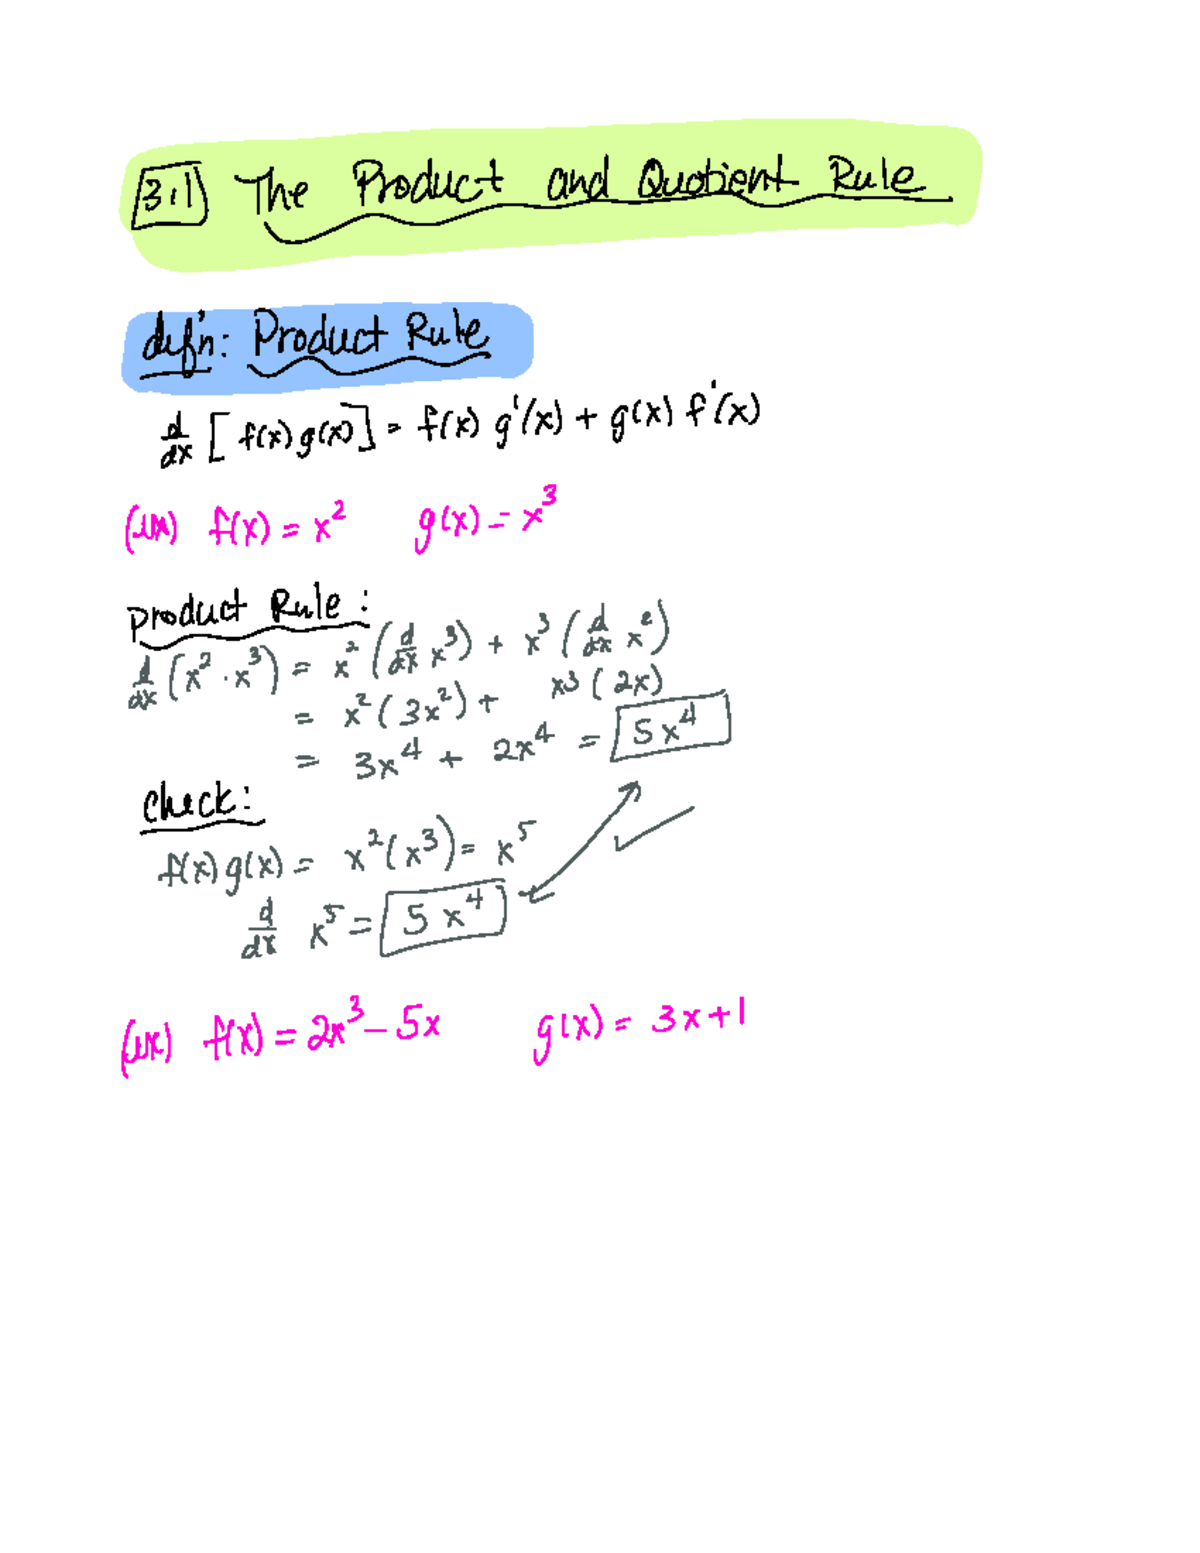 3.1 The Product and Quotient Rule
def'n: Product Rule
d/dx [f(x)g(x)] = f(x) g'(x) + g(x) f'(x)
(ex) f(x) = x² g(x) = x³
Product Rule:
d/dx (x² · x³) = x² (d/dx x³) + x³ (d/dx x²)
= x² (3x²) + x³ (2x)
= 3x⁴ + 2x⁴ = 5x⁴
Check:
f(x)g(x) = x²(x³) = x⁵
d/dx x⁵ = 5x⁴
(ex) f(x) = 2x³ - 5x g(x) = 3x+1